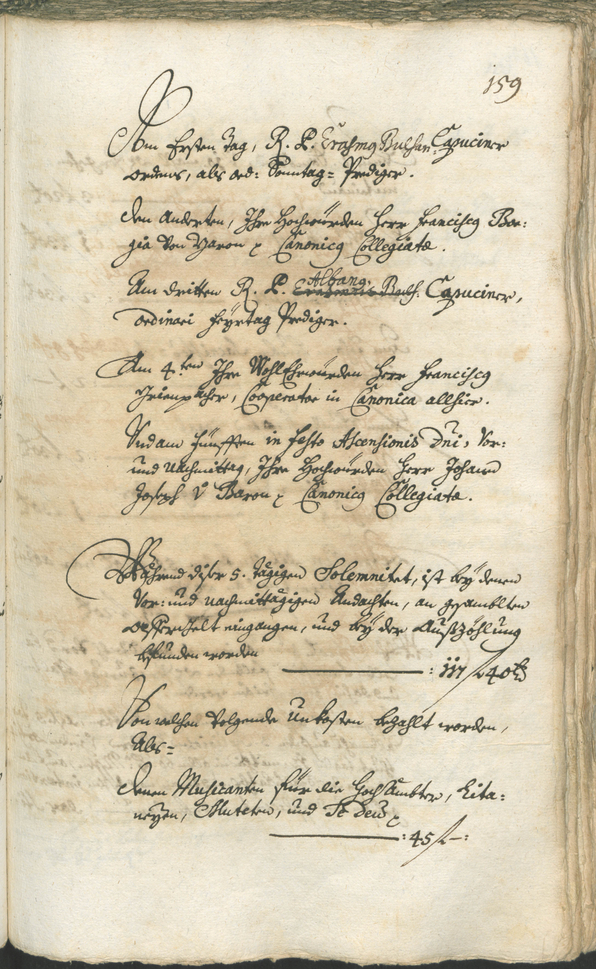 159
Am Ersten Tag, R. P. Erasmq Bulsan: Capuciner
ordens, als ord: Sonntag= Prediger.
den Anderten, Ihre Hochwürden Herr Franciscq Bor:
gia von Baron p Canonicq Collegiatæ.
Am dritten R. P. Albanq Buls. Capuciner,
ordinari Feyrtag Prediger.
Am 4.ten Ihre WohlEhrwürden Herr Franciscq
Grienpacher, Cooperator in Canonica allhier.
Und am Fünfften in festo Ascensionis Dni, Vor:
und Nachmittag, Ihre Hochwürden Herr Johann
Joseph v Baron p Canonicq Collegiatæ.
Während diser 5. tägigen Solemnitet, ist bey denen
Vor: und nachmittägigen Andachten, an gesamblten
opffergelt eingangen, und bey der Außzöhlung
befunden worden : 117 f 40 kr
Von welchen volgende Unkosten bezahlt worden,
Als=
denen Musicanten für die Hochämbter, Lita:
neyen, Muteten, und Te Deu p
: 45 f —: